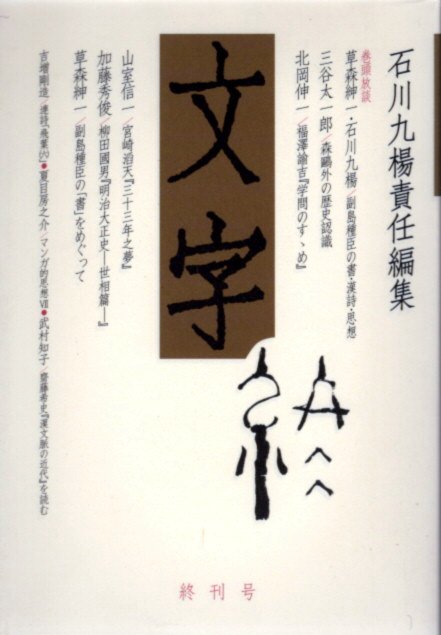 石川九楊責任編集
巻頭放談
草森紳一・石川九楊／副島種臣の書・漢詩・思想
三谷太一郎／森鷗外の歴史認識
北岡伸一／福澤諭吉『学問のすゝめ』
文字
山室信一／宮崎滔天『三十三年之夢』
加藤秀俊／柳田國男『明治大正史―世相篇―』
草森紳一／副島種臣の「書」をめぐって
吉増剛造／連詩「飛葉」(六)●夏目房之介／マンガ的思想Ⅶ●武村知子／齋藤希史『漢文脈の近代』を読む
終刊号